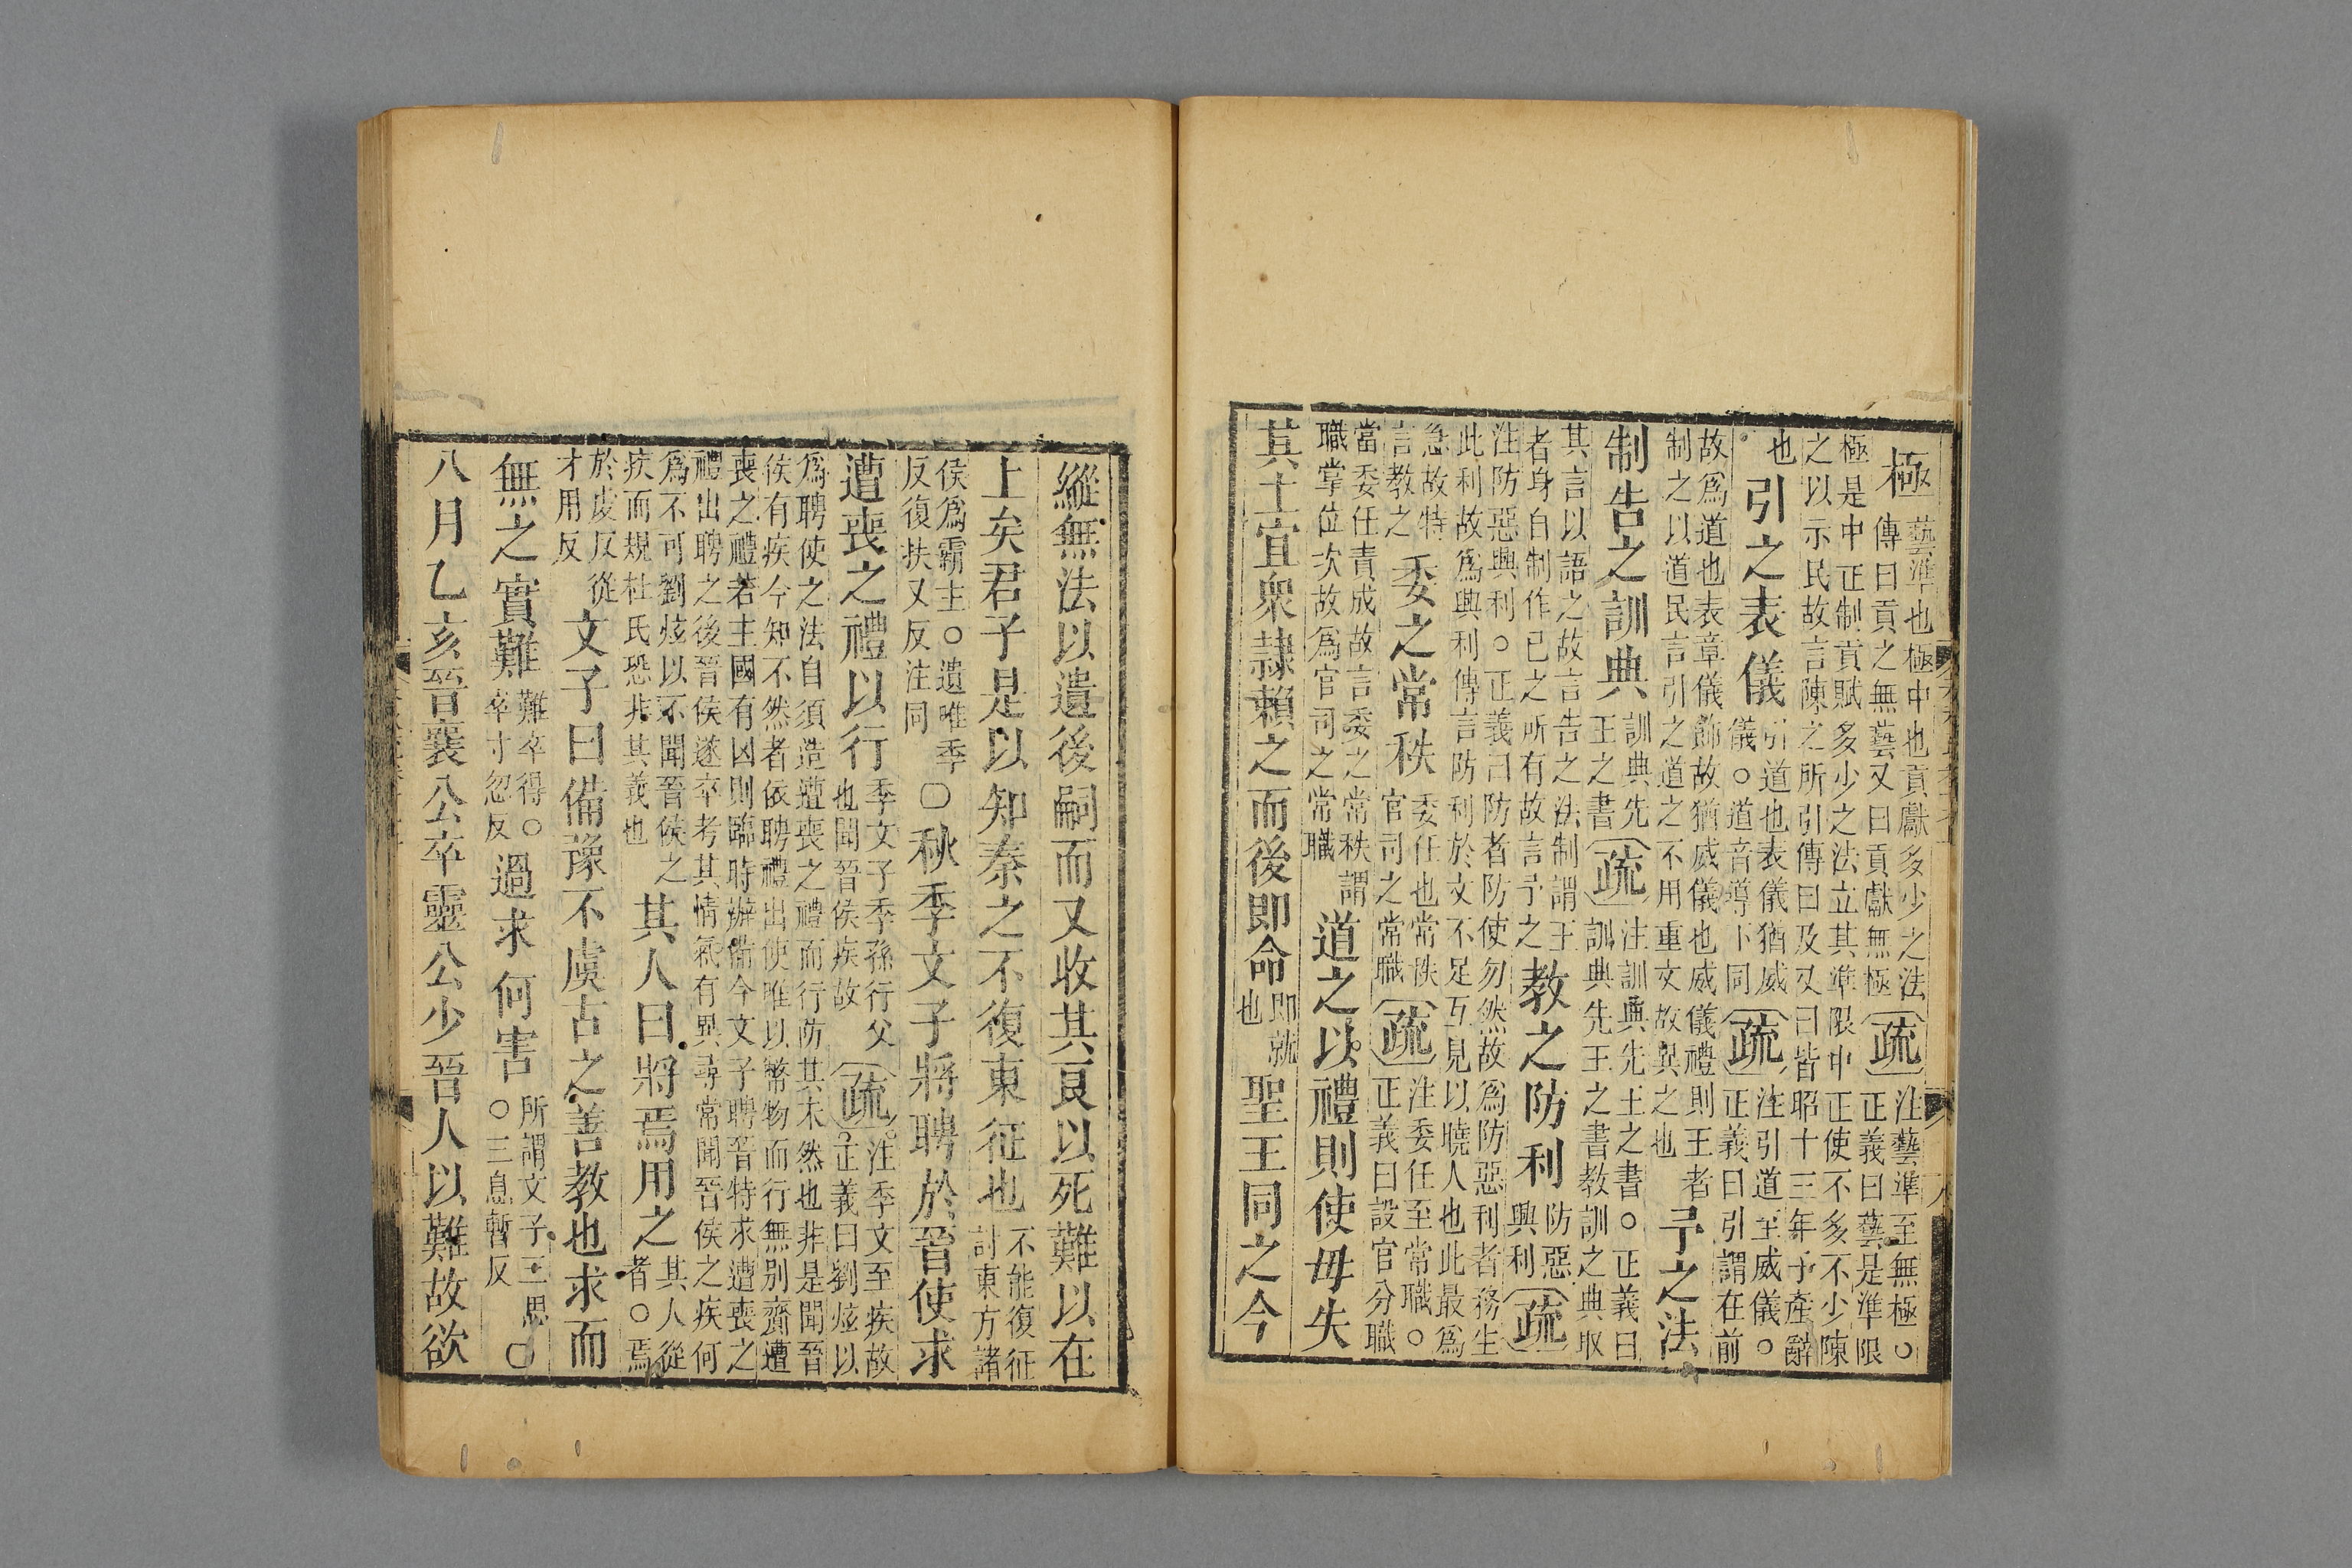 極藝準也極中也貢獻多少之法傳曰貢之無藝又曰貢獻無極疏注藝準至無極○正義曰藝是準限
極是中正制貢賦多少之法立其準限中正使不多不少陳之以示民故言陳之所引傳曰及又曰皆昭十三年子產辭
也引之表儀引道也表儀猶威儀○道音導下同疏注引道至威儀○正義曰引謂在前
故爲道也表章儀飾故猶威儀也威儀禮則王者制之以道民言引之道之不用重文故異之也予之法
制告之訓典訓典先王之書疏注訓典先王之書○正義曰訓典先王之書教訓之典取
其言以語之故言告之法制謂王者身自制作已之所有故言予之教之防利防惡興利疏
注防惡興利○正義曰防者防使勿然故爲防惡利者務生此利故爲興利傳言防利於文不足互見以曉人也此最爲
急故特言教之委之常秩委任也常秩官司之常職疏注委任至常職○正義曰設官分職
當委任責成故言委之常秩謂職掌位次故爲官司之常職道之以禮則使毋失
其土宜衆隷賴之而後即命即就也聖王同之今
縱無法以遺後嗣而又收其良以死難以在
上矣君子是以知秦之不復東征也不能復征討東方諸
侯爲霸主○遺唯季反復扶又反注同○秋季文子將聘於晉使求
遭喪之禮以行季文子季孫行父也聞晉侯疾故疏注季文至疾故○正義曰劉炫以
爲聘使之法自須造遭喪之禮而行防其未然也非是聞晉侯有疾今知不然者依聘禮出使唯以幣物而行無別齎遭
喪之禮若主國有凶則臨時辦備今文子聘晉特求遭喪之禮出聘之後晉侯遂卒考其情氣有異尋常聞晉侯之疾何
爲不可劉炫以不聞晉侯之疾而規杜氏恐非其義也其人曰將焉用之其人從者○焉
於虔反從才用反文子曰備豫不虞古之善教也求而
無之實難難卒得○卒寸忽反過求何害所謂文子三思○三息暫反○
八月乙亥晉襄公卒靈公少晉人以難故欲